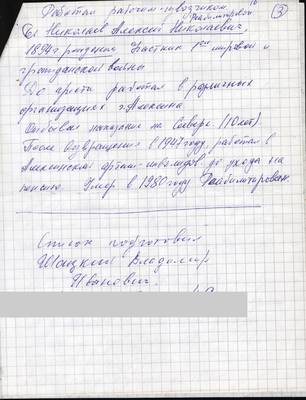 Работал рабочим-извозчиком.
Реабилитирован
3
Николаев Алексей Николаевич,
1894 г рождения Участник 1ой мировой и
гражданской войны
До ареста работал в различных
организациях г. Алексина
Отбывал наказание на Севере. (10 лет).
После возвращения в 1947 году работал в
Алексинской артели инвалидов до ухода на
пенсию. Умер в 1980 году Реабилитирован.
Список подготовил
Шацкий Владимир
Иванович.